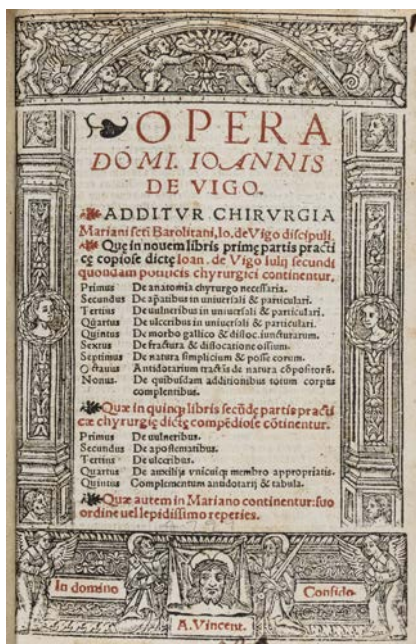 OPERA
DOMI. IOANNIS
DE VIGO.
ADDITVR CHIRVRGIA
Mariani scti Barolitani, Io. de Vigo discipuli.
Que in nouem libris primę partis practi
cę copiose dictę Ioan. de Vigo Iulij secundi
quondam pontificis chyrurgici continentur.
Primus De anatomia chyrurgo necessaria.
Secundus De apatibus in uniuersali & particulari.
Tertius De uulneribus in uniuersali & particulari.
Quartus De ulceribus in uniuersali & particulari.
Quintus De morbo gallico & disloc. iuncturarum.
Sextus De fractura & dislocatione ossium.
Septimus De natura simplicium & posse eorum.
Octauus Antidotarium tractās de natura cōpositorū.
Nonus. De quibusdam additionibus totum corpus
complentibus.
Quæ in quinqʒ libris secūdę partis practi
cæ chyrurgię dictę compēdiose cōtinentur.
Primus De uulneribus.
Secundus De apostematibus.
Tertius De ulceribus.
Quartus De auxilijs vnicuiqʒ membro appropriatis.
Quintus Complementum antidotarij & tabula.
Quæ autem in Mariano continentur: suo
ordine uel lepidissimo reperies.
In domino
Confido.
A. Vincent.